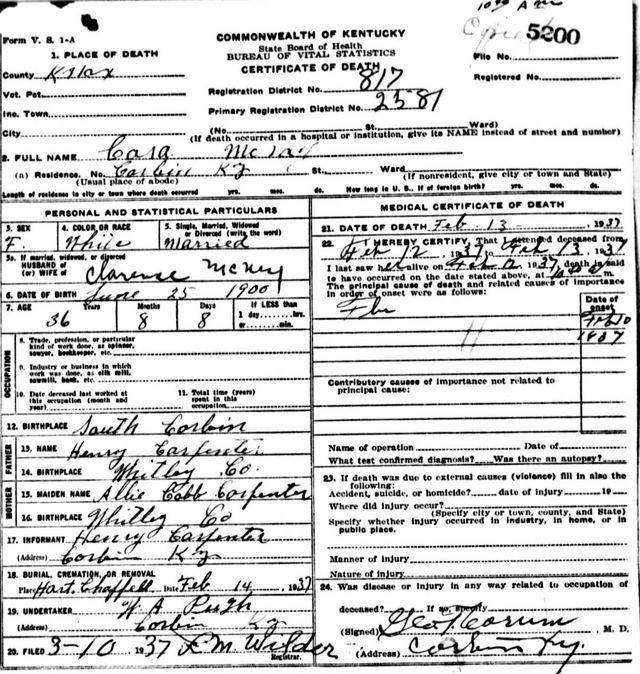 Form V. S. 1-A
COMMONWEALTH OF KENTUCKY
State Board of Health
BUREAU OF VITAL STATISTICS
CERTIFICATE OF DEATH
File No. 5200
Registered No.
1. PLACE OF DEATH
County Knox
Vot. Pct.
Inc. Town
City
Registration District No. 817
Primary Registration District No. 2581
(No. St. Ward)
(If death occurred in a hospital or institution, give its NAME instead of street and number)
2. FULL NAME Cora
(a) Residence. No. Corbin Ky St. Ward
(Usual place of abode) (If nonresident, give city or town and State)
Length of residence in city or town where death occurred yrs. mos. ds. How long in U. S., if of foreign birth? yrs. mos. ds.
PERSONAL AND STATISTICAL PARTICULARS
3. SEX F.
4. COLOR OR RACE White
5. Single, Married, Widowed or Divorced (write the word) Married
5a. If married, widowed, or divorced
HUSBAND of
(or) WIFE of Clarence
6. DATE OF BIRTH June 25 1900
7. AGE 36 Years 8 Months 8 Days
If LESS than
1 day......hrs.
or......min.
OCCUPATION
8. Trade, profession, or particular
kind of work done, as spinner,
sawyer, bookkeeper, etc.
9. Industry or business in which
work was done, as silk mill,
sawmill, bank, etc.
10. Date deceased last worked at
this occupation (month and
year)
11. Total time (years)
spent in this
occupation
12. BIRTHPLACE South Corbin
FATHER
13. NAME Henry Carpenter
14. BIRTHPLACE Whitley Co.
MOTHER
15. MAIDEN NAME Allie Cobb Carpenter
16. BIRTHPLACE Whitley Co
17. INFORMANT Henry Carpenter
(Address) Corbin Ky
18. BURIAL, CREMATION, OR REMOVAL
Place Hart Chappell Date Feb 14, 1937
19. UNDERTAKER W. A Pugh
(Address) Corbin Ky
20. FILED 3-10 1937 L. M. Wilder
Registrar.
MEDICAL CERTIFICATE OF DEATH
21. DATE OF DEATH Feb 13, 1937
22. I HEREBY CERTIFY, That I attended deceased from
Feb 12, 1937 to Feb 13, 1937
I last saw her alive on Feb 12, 1937 death is said
to have occurred on the date stated above, at m.
The principal cause of death and related causes of importance
in order of onset were as follows:
Date of onset
Flu Feb 10
1937
Contributory causes of importance not related to
principal cause:
Name of operation Date of
What test confirmed diagnosis? Was there an autopsy?
23. If death was due to external causes (violence) fill in also the
following:
Accident, suicide, or homicide? date of injury 19
Where did injury occur?
(Specify city or town, county, and State)
Specify whether injury occurred in industry, in home, or in
public place.
Manner of injury
Nature of injury
24. Was disease or injury in any way related to occupation of
deceased? If so, specify
(Signed) M. D.
(Address) Corbin Ky.